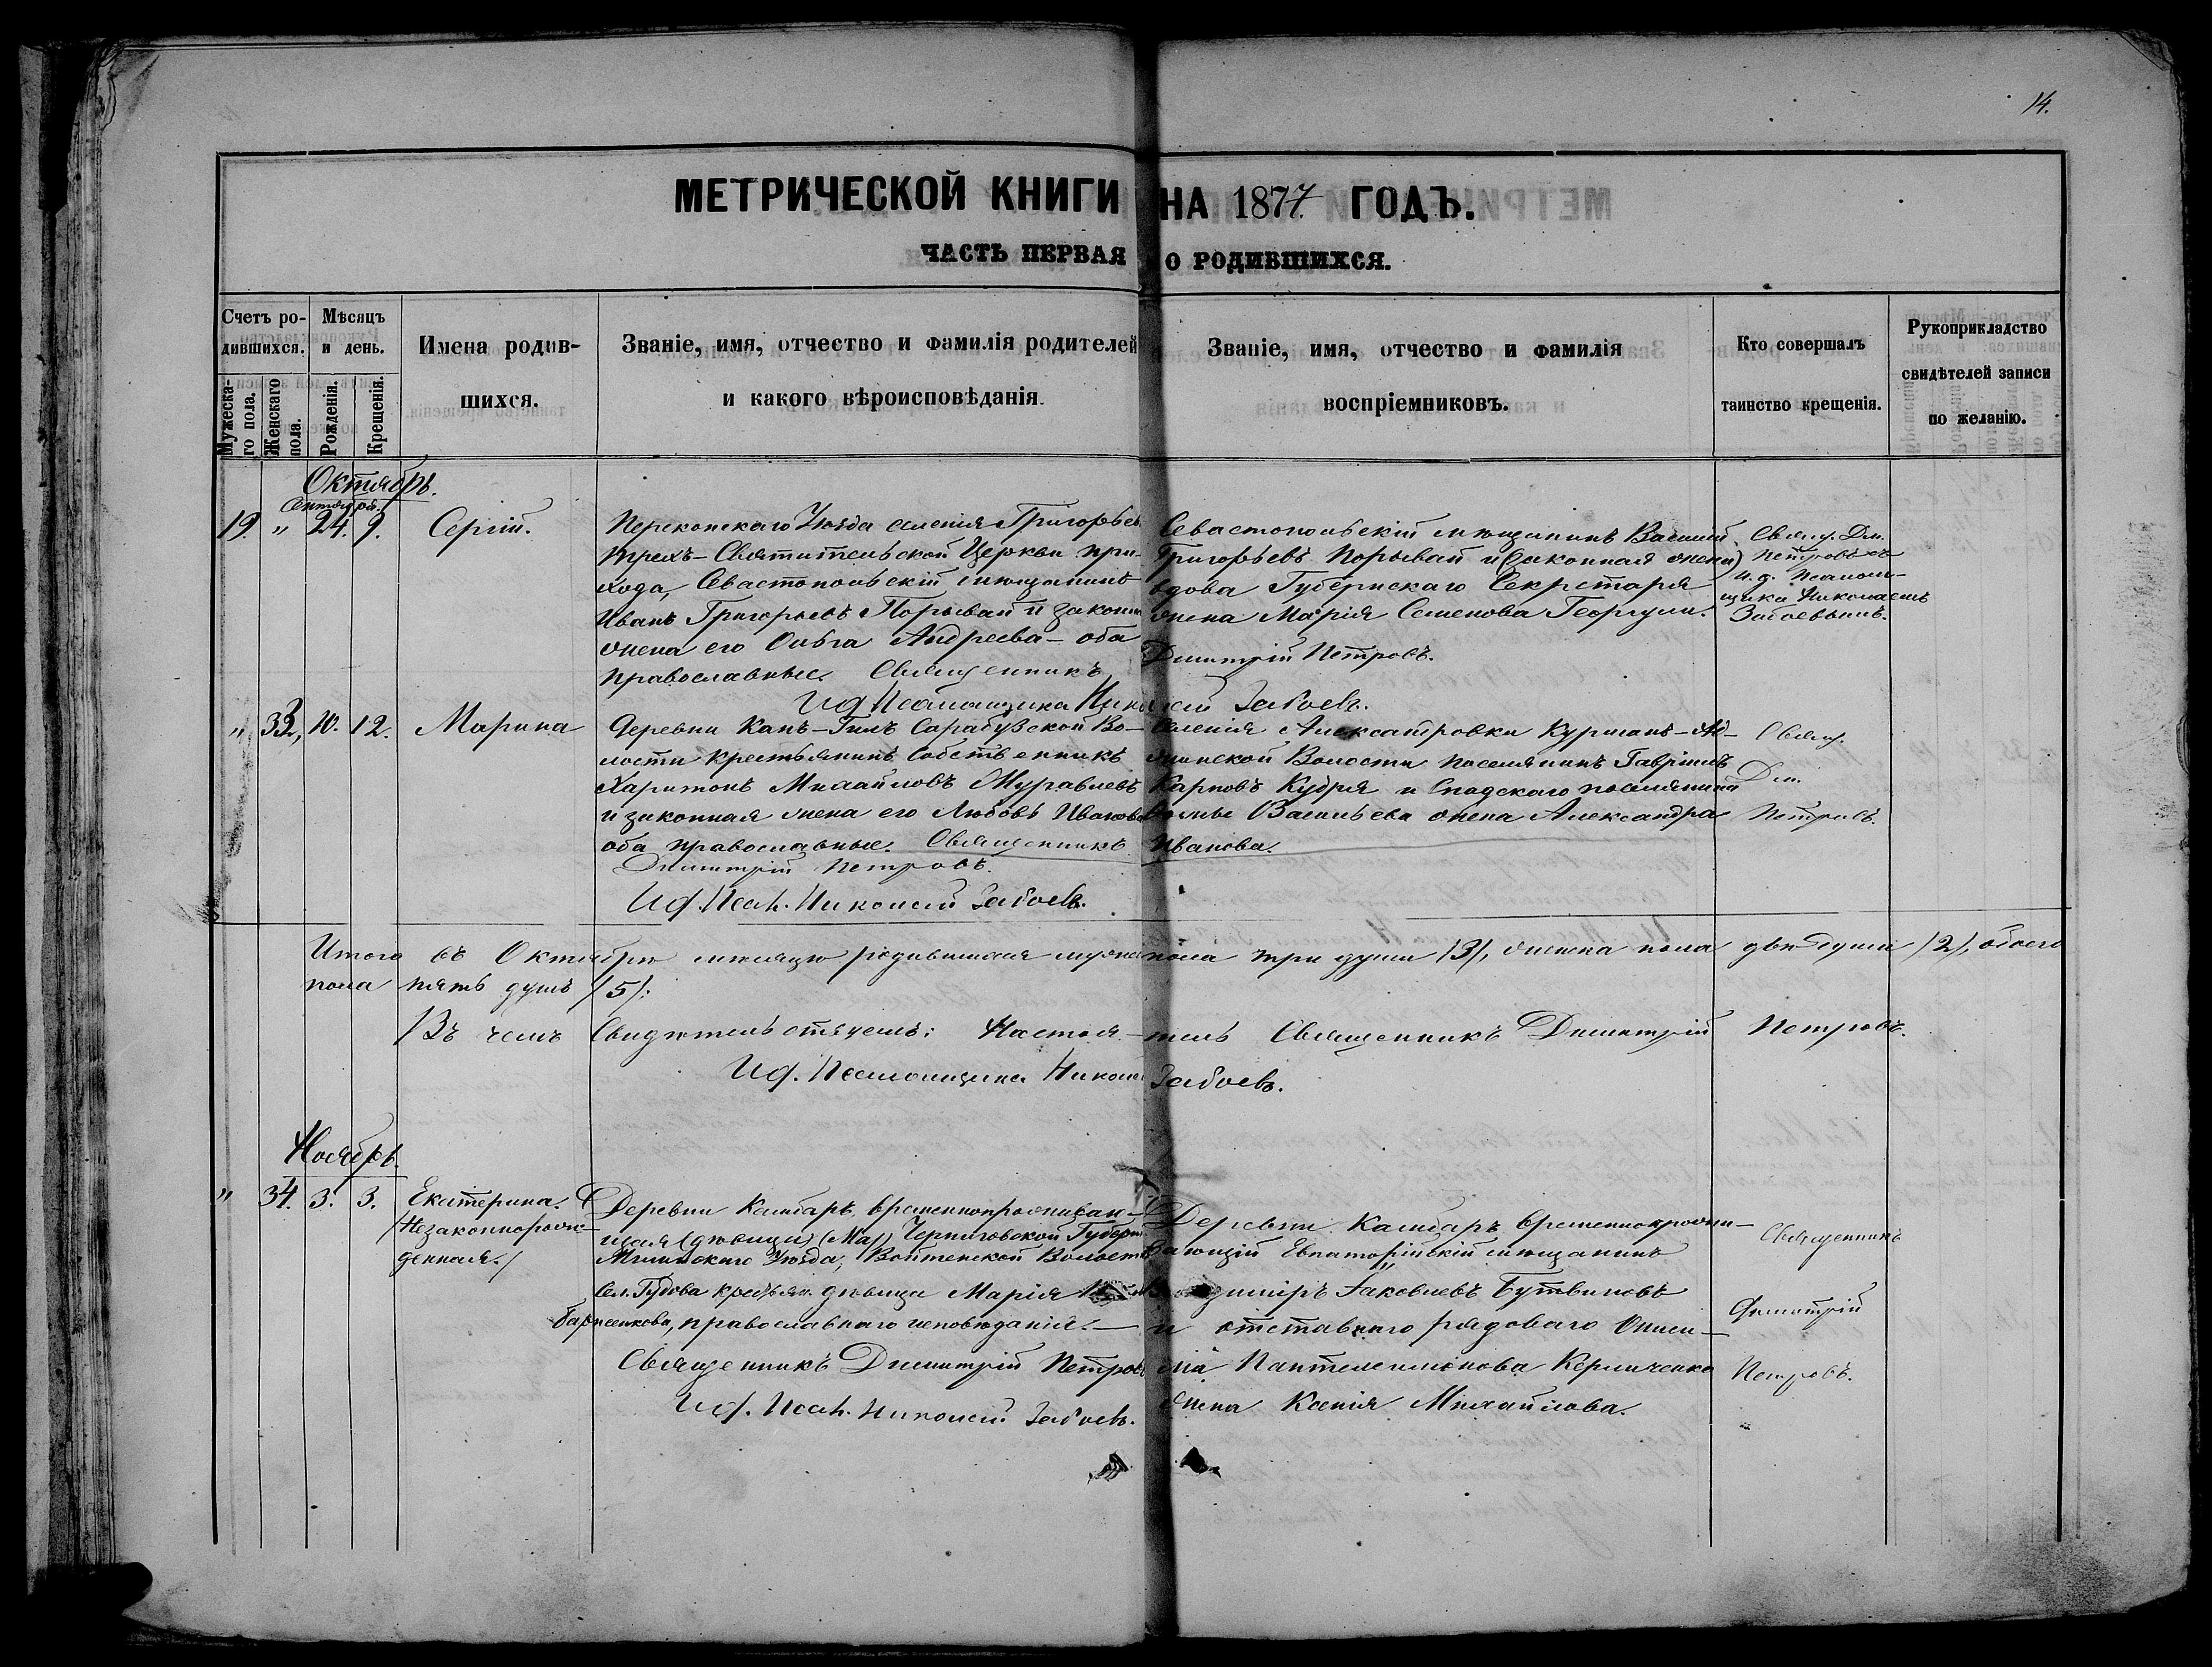 14.
МЕТРИЧЕСКОЙ КНИГИ НА 1877 ГОДЪ.
ЧАСТЬ ПЕРВАЯ О РОДИВШИХСЯ.
Счетъ ро-
дившихся.
Мужеска-
го пола.
Женскаго
пола.
Мѣсяцъ
и день.
Рожденія.
Крещенія.
Имена родив-
шихся.
Званіе, имя, отчество и фамилія родителей
и какого вѣроисповѣданія.
Званіе, имя, отчество и фамилія
воспріемниковъ.
Кто совершалъ
таинство крещенія.
Рукоприкладство
свидѣтелей записи
по желанію.
Октябрь.
Сентября.
19. " 24. 9. Сергій.
Перекопскаго Уѣзда селенія Григорьев.
Трехъ-Святительской Церкви при-
хода, Севастопольскій мѣщанинъ
Иванъ Григорьевъ Порывай и законн
жена его Ольга Андреева - оба
православные. Священникъ Димитрій Петровъ.
Ид Псаломщика Николай Забоевъ.
Севастопольскій мѣщанинъ Василій
Григорьевъ Порывай и (законная жена)
вдова Губернскаго Секретаря
жена Марія Семенова
Свящ. Дм.
Петровъ съ
и. д. Псалом-
щика Николаемъ
Забоевымъ.
" 33, 10. 12. Марина
Деревни Сарабузской Во-
лости крестьянинъ собственникъ
Харитонъ Михайловъ Журавлевъ
и законная жена его Любовь Иванова
оба православные. Священникъ
Димитрій Петровъ.
Ид. Псал. Николай Забоевъ.
Селенія Александровки Курманъ-
Волости поселянинъ Гавріилъ
Карповъ Кудря и поселянина
Васильева жена Александра
Иванова.
Свящ.
Дим.
Петровъ.
Итого въ Октябрѣ мѣсяцѣ родившихся мужеска пола три души /3/, женска пола двѣ души /2/, обоего
пола пять душъ /5/:
Въ чемъ свидѣтельствуемъ: Настоя-тель Священникъ Димитрій Петровъ.
Ид. Псаломщика Николай Забоевъ.
Ноябрь.
" 34. 3. 3. Екатерина.
/Незаконнорож-
денная./
Деревни Камбаръ временнопроживаю-
щая (дѣвица) (Ма) Черниговской Губерн
Мглинскаго Уѣзда, Волости
Сел. Гудова крестьян. дѣвица Марія
Борисенкова, православнаго исповѣданія.
Священникъ Димитрій Петровъ
Ид. Псал. Николай Забоевъ.
Деревни Камбаръ временнопрожи-
вающій Евпаторійскій мѣщанинъ
Владиміръ Іаковлевъ Бутвиновъ
и отставнаго рядоваго Ониси-
Пантелеимонова
жена Ксенія Михайлова.
Священникъ
Димитрій
Петровъ.